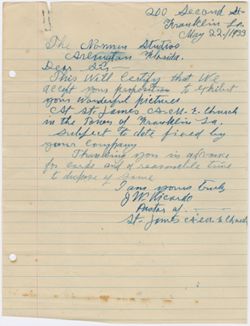 200 Second St
Franklin La.
May 22/1933
The Norman Studios
Arlington Florida.
Dear Sir,
This Will Certify that We
accept your proposition to exhibit
your Wonderful pictures.
At St. James A.M.E. Church
in the Town of Franklin La
subject to date fixed by
your Company
Thanking you in advance
for cards and a reasonable time
to dispose of same
I am yours truly
J W Ricardo
Pastor of
St. James A.M.E. Church